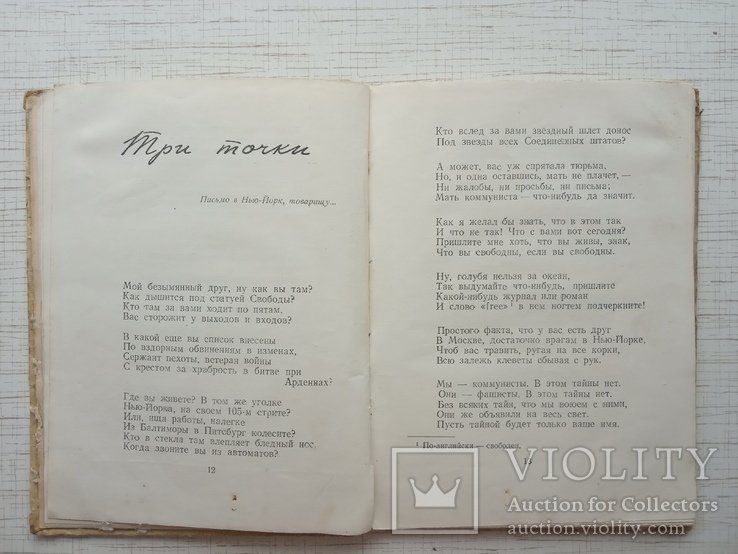 Три точки
Письмо в Нью-Йорк, товарищу...
Мой безымянный друг, ну как вы там?
Как дышится под статуей Свободы?
Кто там за вами ходит по пятам,
Вас сторожит у выходов и входов?
В какой еще вы список внесены
По вздорным обвинениям в изменах,
Сержант пехоты, ветеран войны
С крестом за храбрость в битве при
Арденнах?
Где вы живете? В том же уголке
Нью-Йорка, на своем 105-м стрите?
Или, ища работы, налегке
Из Балтиморы в Питсбург колесите?
Кто в стекла там влепляет бледный нос,
Когда звоните вы из автоматов?
12
Кто вслед за вами звёздный шлет донос
Под звезды всех Соединенных штатов?
А может, вас уж спрятала тюрьма,
Но, и одна оставшись, мать не плачет,—
Ни жалобы, ни просьбы, ни письма;
Мать коммуниста — что-нибудь да значит.
Как я желал бы знать, что в этом так
И что не так! Что с вами вот сегодня?
Пришлите мне хоть, что вы живы, знак,
Что вы свободны, если вы свободны.
Ну, голубя нельзя за океан,
Так выдумайте что-нибудь, пришлите
Какой-нибудь журнал или роман
И слово «free»¹ в нем ногтем подчеркните!
Простого факта, что у вас есть друг
В Москве, достаточно врагам в Нью-Йорке,
Чтоб вас травить, ругая на все корки,
Всю залежь клеветы сбывая с рук.
Мы — коммунисты. В этом тайны нет.
Они — фашисты. В этом тайны нет.
Без всяких тайн, что мы воюем с ними,
Они же объявили на весь свет.
Пусть тайной будет только ваше имя.
¹ По-английски — свободен.
13
VIOLITY
Auction for Collectors
auction.violity.com